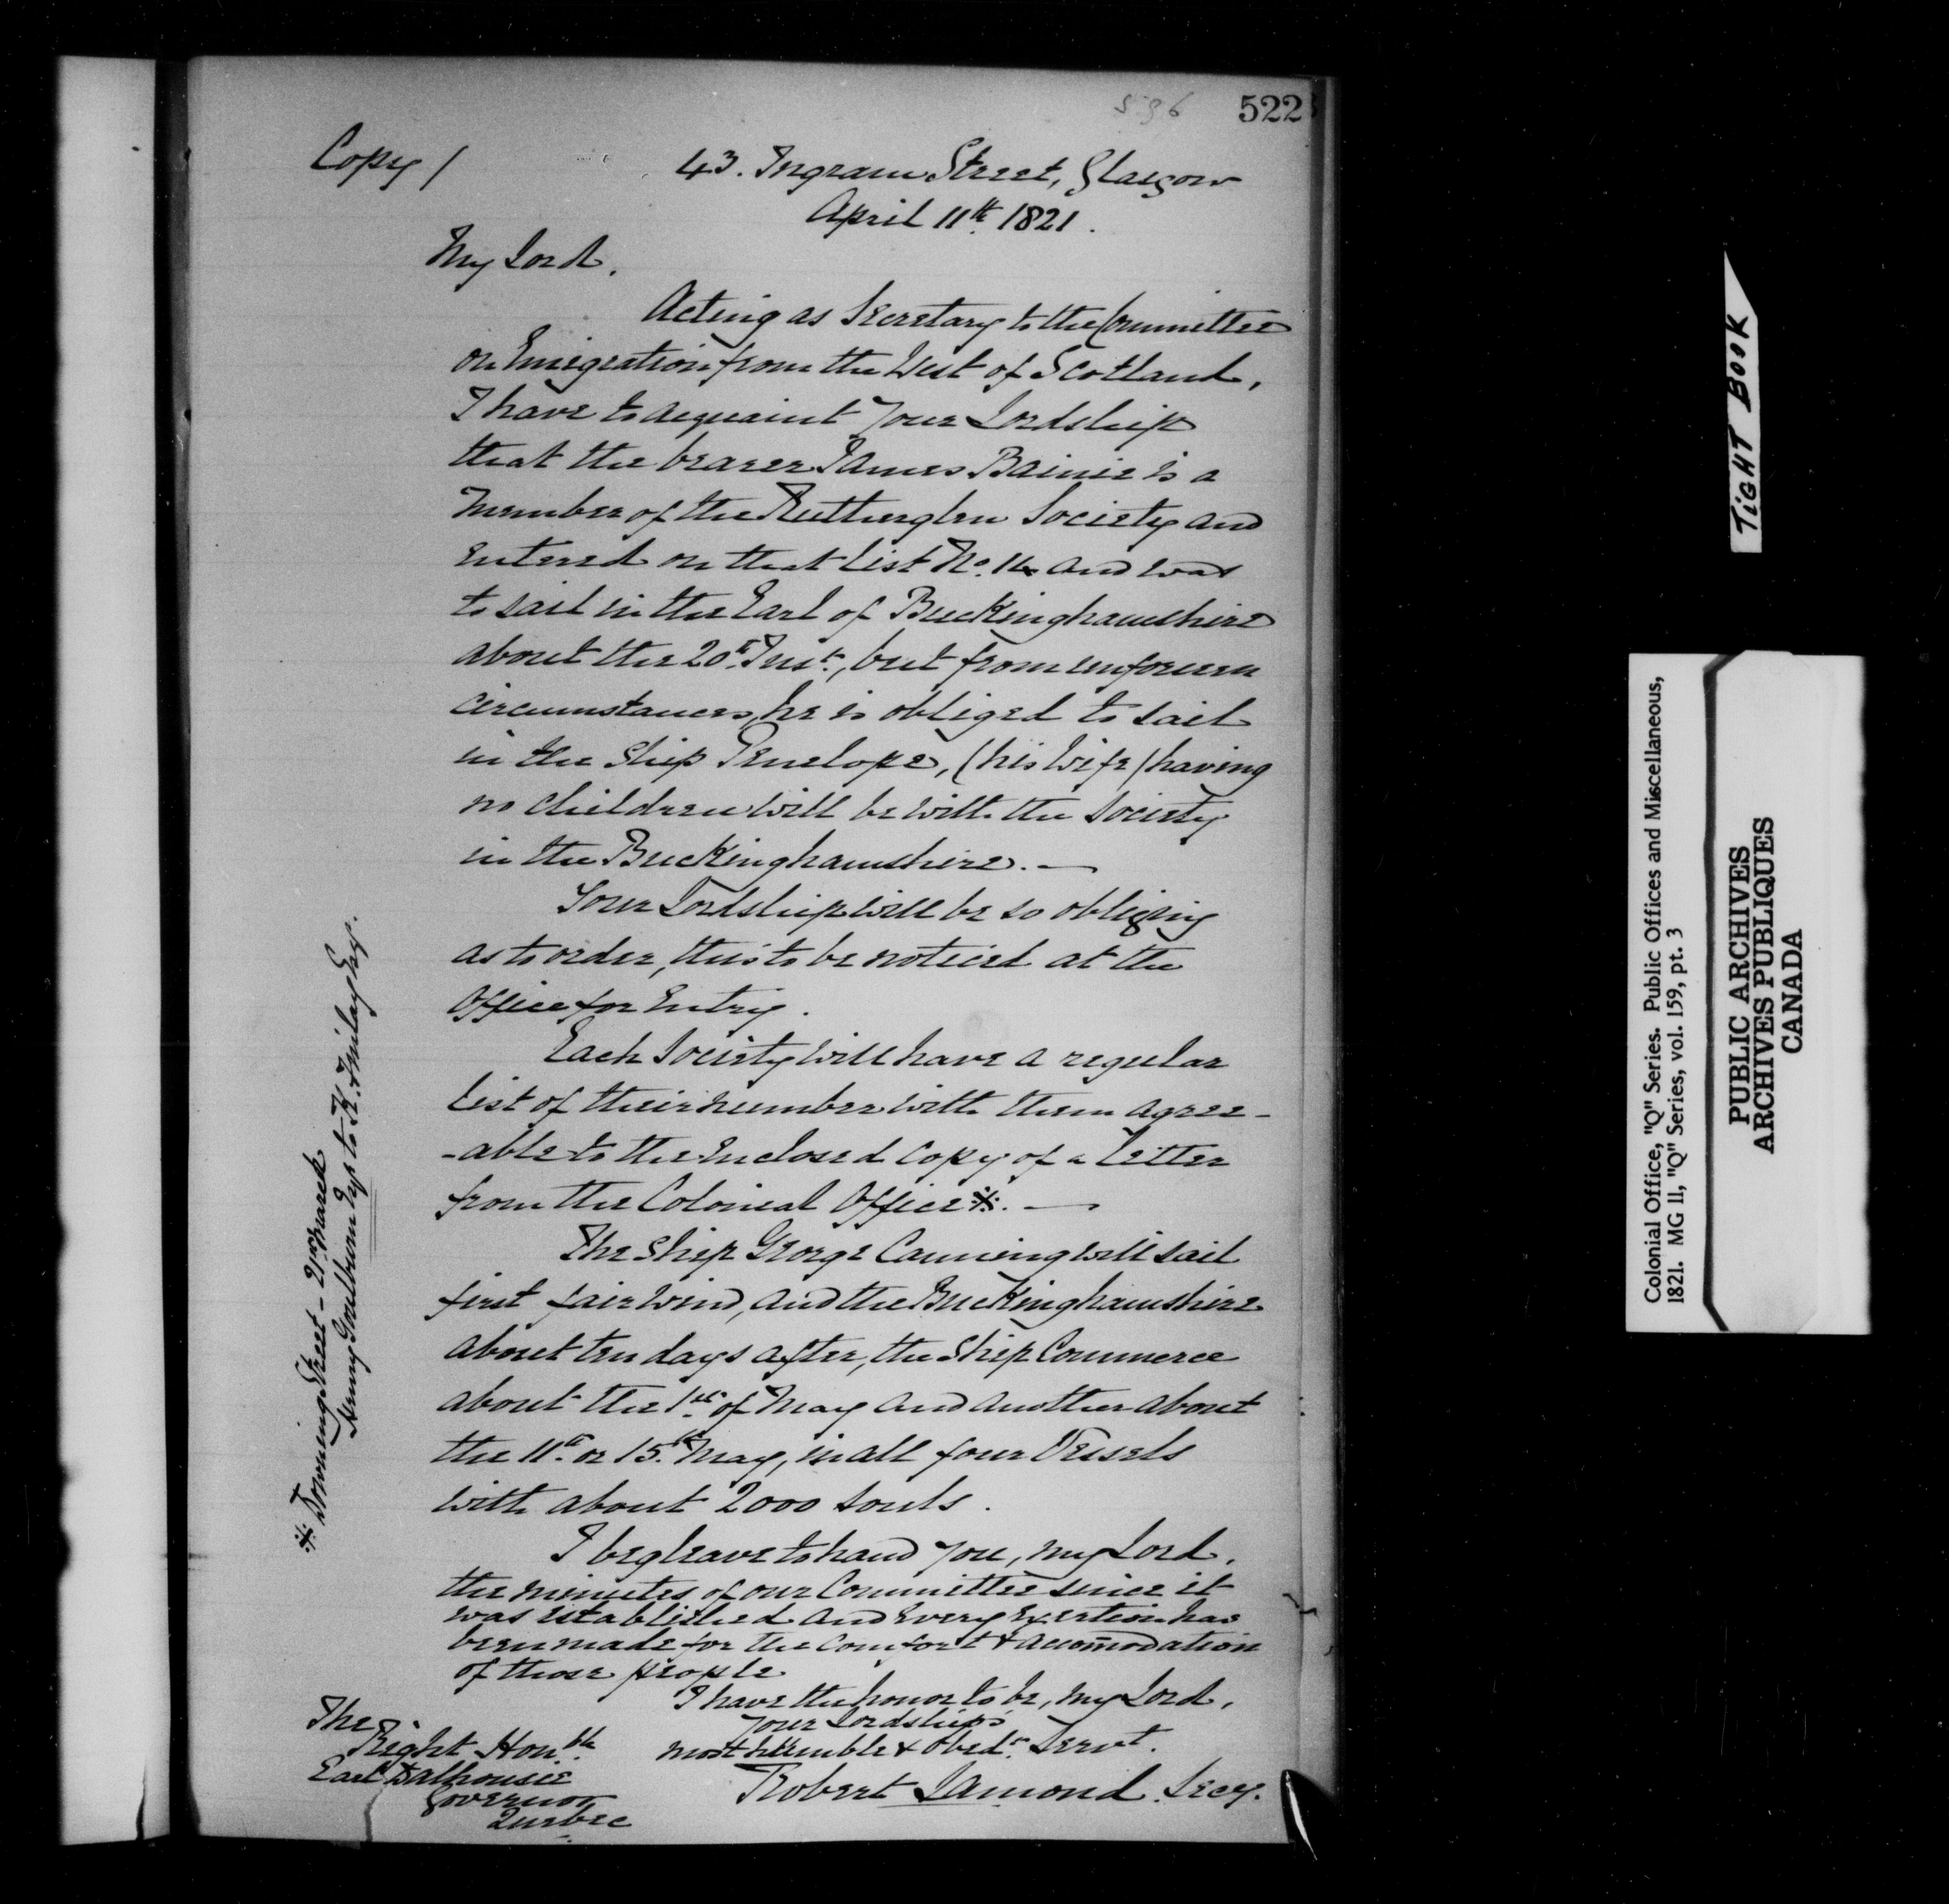 596 522
Copy /
43. Ingram Street, Glasgow
April 11th. 1821.
My Lord.
Acting as Secretary to the Committee
on Emigration from the West of Scotland,
I have to acquaint Your Lordship
that the bearer James Bainie is a
Member of the Rutherglen Society and
entered on that List No. 14 and was
to sail in the Earl of Buckinghamshire
about the 20th. Inst., but from unforseen
circumstances, he is obliged to sail
in the Ship Penelope, (his Wife) having
no children will be with the Society
in the Buckinghamshire. —
Your Lordship will be so obliging
as to order, this to be noticed at the
Office for Entry.
Each Society will have a regular
List of their number with them agree-
-able to the Enclosed Copy of a Letter
from the Colonial Office ※. —
The Ship George Canning will sail
first fair wind, and the Buckinghamshire
about ten days after, the Ship Commerce
about the 1st. of May and another about
the 11th. or 15th. May, in all four Vessels
with about 2000 Souls.
I beg leave to hand you, my Lord,
the minutes of our Committee since it
was established and every exertion has
been made for the comfort & accomodation
of those people
I have the honor to be, my Lord,
Your Lordships
most humble & Obedt. Servt.
Robert Lamond. Secy.
The
Right Honble.
Earl Dalhousie
Governor
Quebec
※ Downing Street – 21st March
Henry Goulburn Esq to K. Finlay Esq.
TIGHT BOOK
Colonial Office, "Q" Series. Public Offices and Miscellaneous,
1821. MG 11, "Q" Series, vol. 159, pt. 3
PUBLIC ARCHIVES
ARCHIVES PUBLIQUES
CANADA